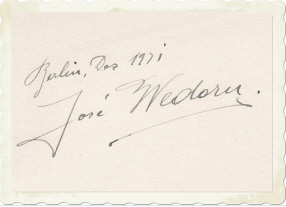 Berlin, Dez 1931
José Wedorn.